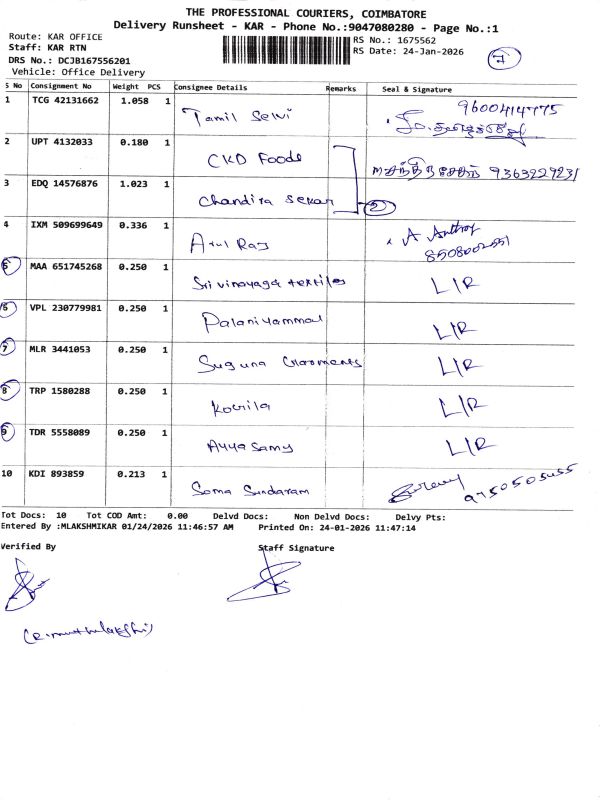 THE PROFESSIONAL COURIERS, COIMBATORE
Delivery Runsheet - KAR - Phone No.:9047080280 - Page No.:1
Route: KAR OFFICE
Staff: KAR RTN
DRS No.: DCJB167556201
Vehicle: Office Delivery
RS No.: 1675562
RS Date: 24-Jan-2026
7
S No Consignment No Weight PCS Consignee Details Remarks Seal & Signature
1 TCG 42131662 1.058 1 Tamil Selvi 9600414775
2 UPT 4132033 0.180 1 CKD Foods
3 EDQ 14576876 1.023 1 Chandira Sekar 2
4 IXM 509699649 0.336 1 Arul Raj A Anthoy
5 MAA 651745268 0.250 1 Sri vinayaga textiles L/R
6 VPL 230779981 0.250 1 Palaniyammal L/R
7 MLR 3441053 0.250 1 Suguna Garments L/R
8 TRP 1580288 0.250 1 L/R
9 TDR 5558089 0.250 1 Ayyasamy L/R
10 KDI 893859 0.213 1 Soma Sundaram
Tot Docs: 10 Tot COD Amt: 0.00 Delvd Docs: Non Delvd Docs: Delvy Pts:
Entered By :MLAKSHMIKAR 01/24/2026 11:46:57 AM Printed On: 24-01-2026 11:47:14
Verified By Staff Signature